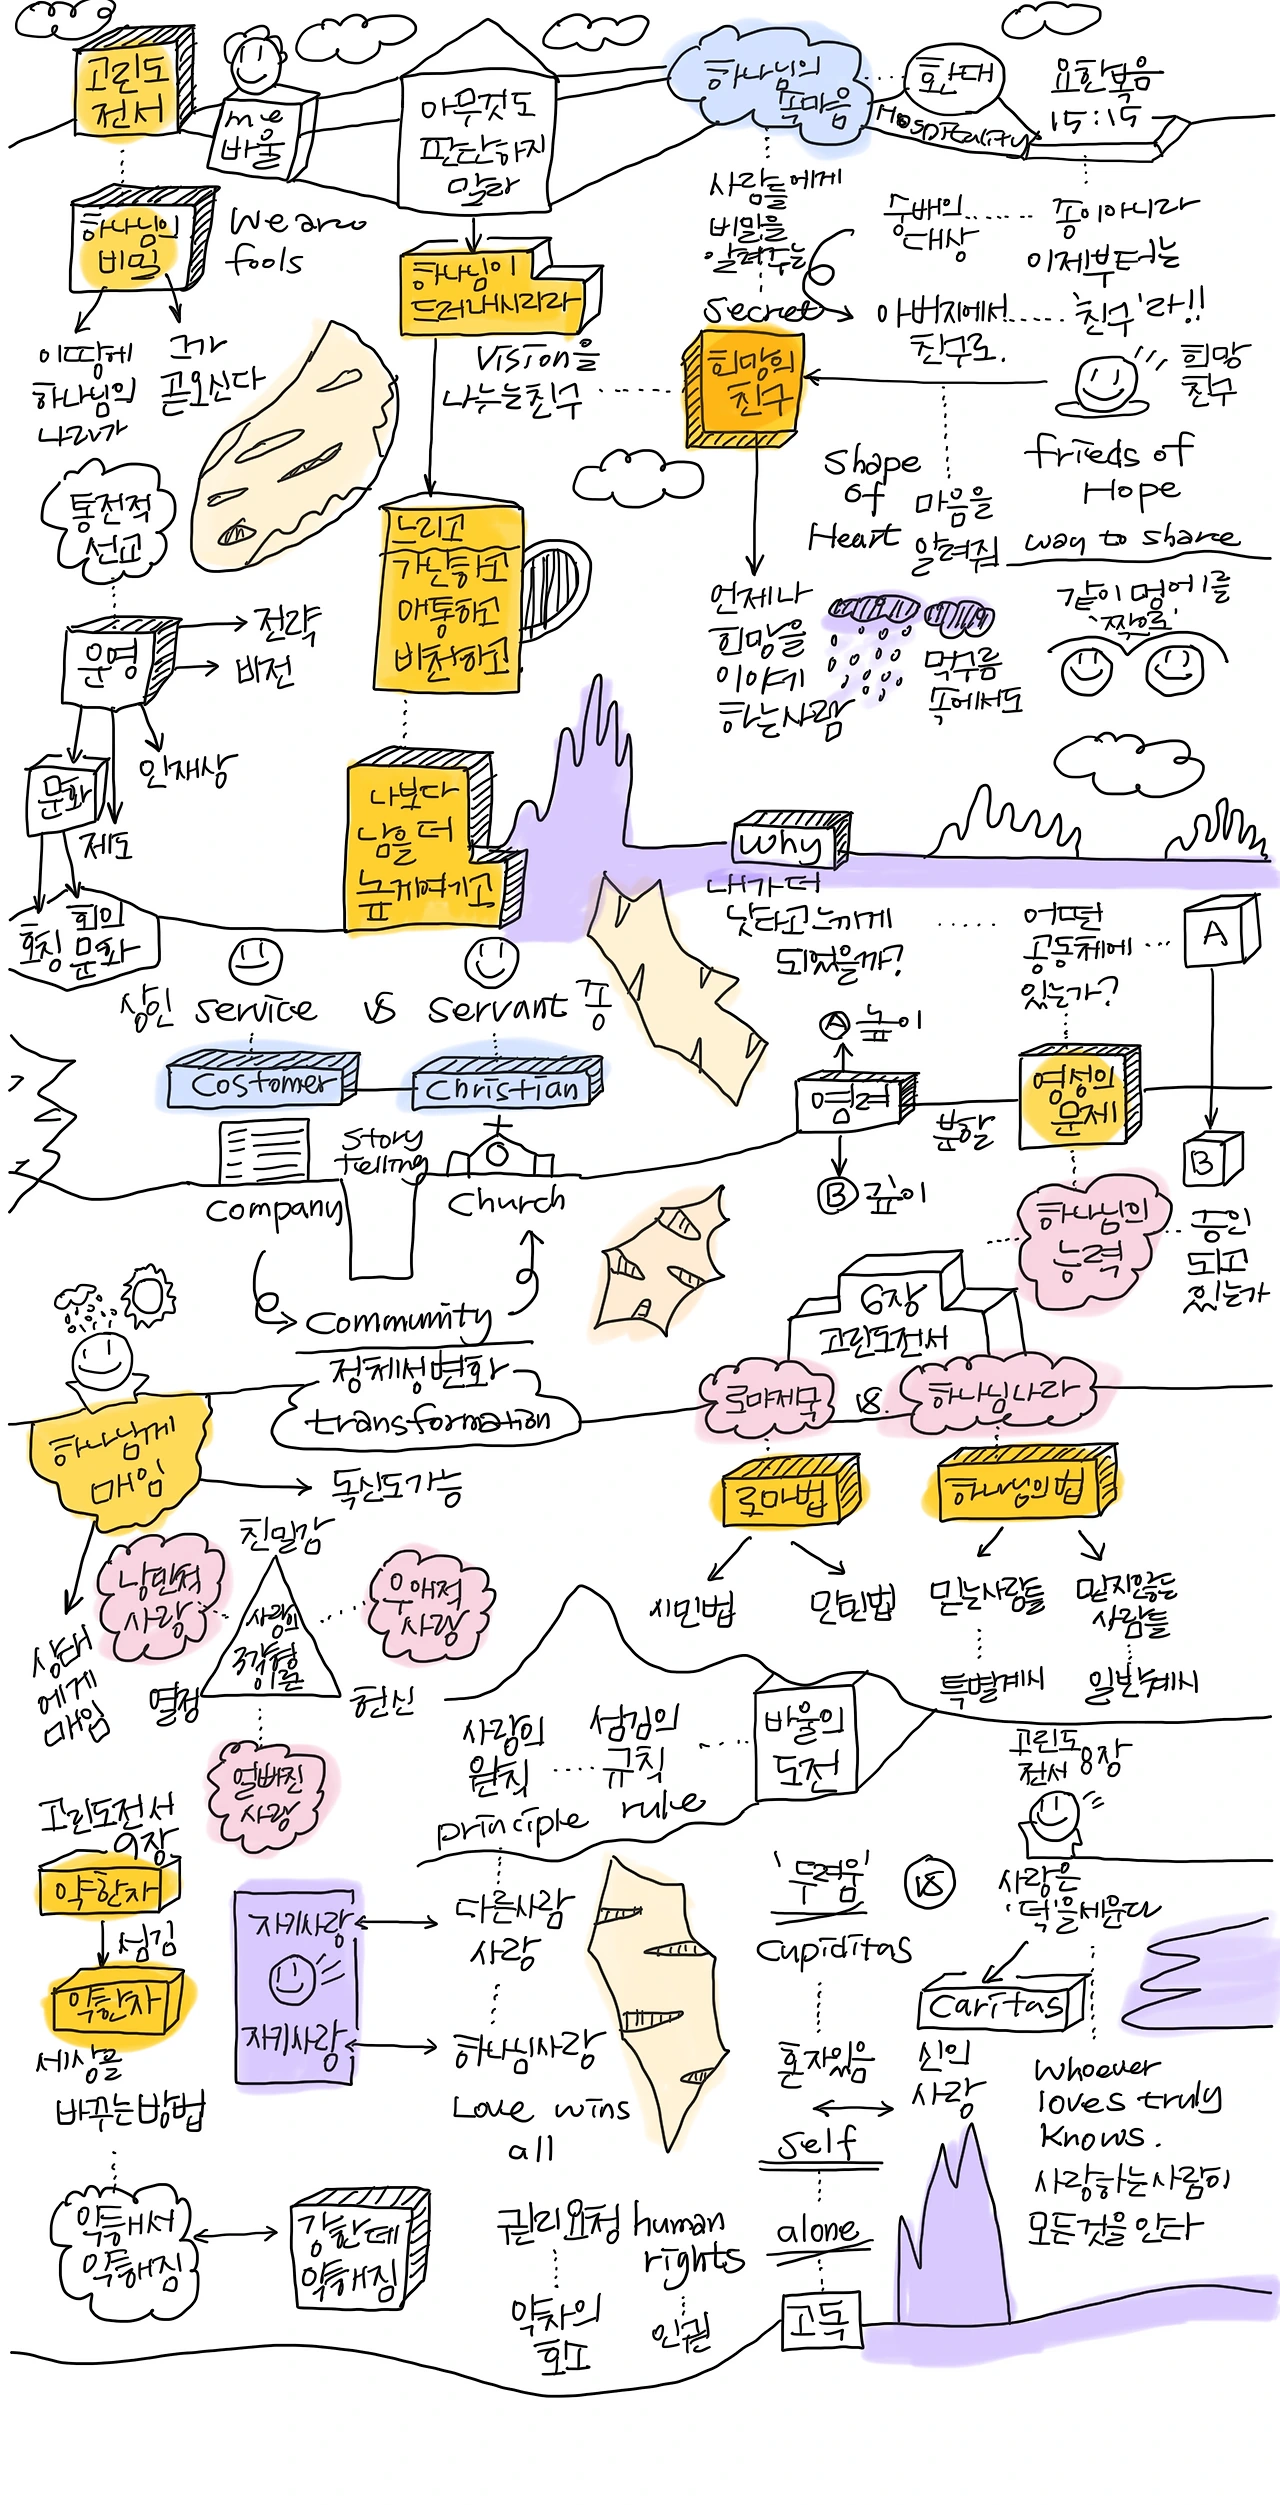 고린도
전서
me
바울
아무것도
판단하지
말라
하나님의
속마음
환대
Hospitality
요한복음
15:15
하나님의
비밀
We are
fools
하나님이
드러내시리라
사람들에게
비밀을
알려주는
Secret
숭배의
대상
종이아니라
이제부터는
아버지에서
친구로.
'친구'라!!
이땅에
하나님의
나라가
그가
곧오신다
Vision을
나누는친구
희망의
친구
희망
친구
통전적
선교
Shape
of
Heart
마음을
알려줘
frieds of
Hope
way to share
느리고
가난하고
애통하고
비천하고
운영
전략
비전
언제나
희망을
이야기
하는사람
먹구름
속에서도
같이 멍에를
문화
제도
인재상
호칭
회의
문화
나보다
남을 더
높게여기고
Why
내가 더
낫다고느끼게
되었을까?
어떤
공동체에
있는가?
A
상인 service vs servant 종
Costomer
Christian
Ⓐ 높이
Ⓑ 깊이
분할
영성의
문제
B
company
story
telling
Church
하나님의
능력
증인
되고
있는가
Community
정체성변화
transformation
6장
고린도전서
로마제국
vs.
하나님나라
하나님께
매임
독신도가능
로마법
하나님의법
시민법
만민법
믿는사람들
믿지않는
사람들
특별계시
일반계시
친밀감
낭만적
사랑
사랑의
3각형
이론
우애적
사랑
열정
헌신
상대
에게
매임
얼빠진
사랑
사랑의
원칙
principle
섬김의
규칙
rule
바울의
도전
고린도
전서 8장
고린도전서
9장
약한자
섬김
약한자
세상을
바꾸는방법
자기사랑
자기사랑
다른사람
사랑
하나님사랑
Love wins
all
'두려움'
vs
사랑은
'덕'을세운다
Cupiditas
Caritas
혼자있음
신의
사랑
Whoever
loves truly
knows.
사랑하는사람이
모든것을 안다
self
alone
고독
약해서
약해짐
강한데
약해짐
권리요청
약자의
human
rights
인권